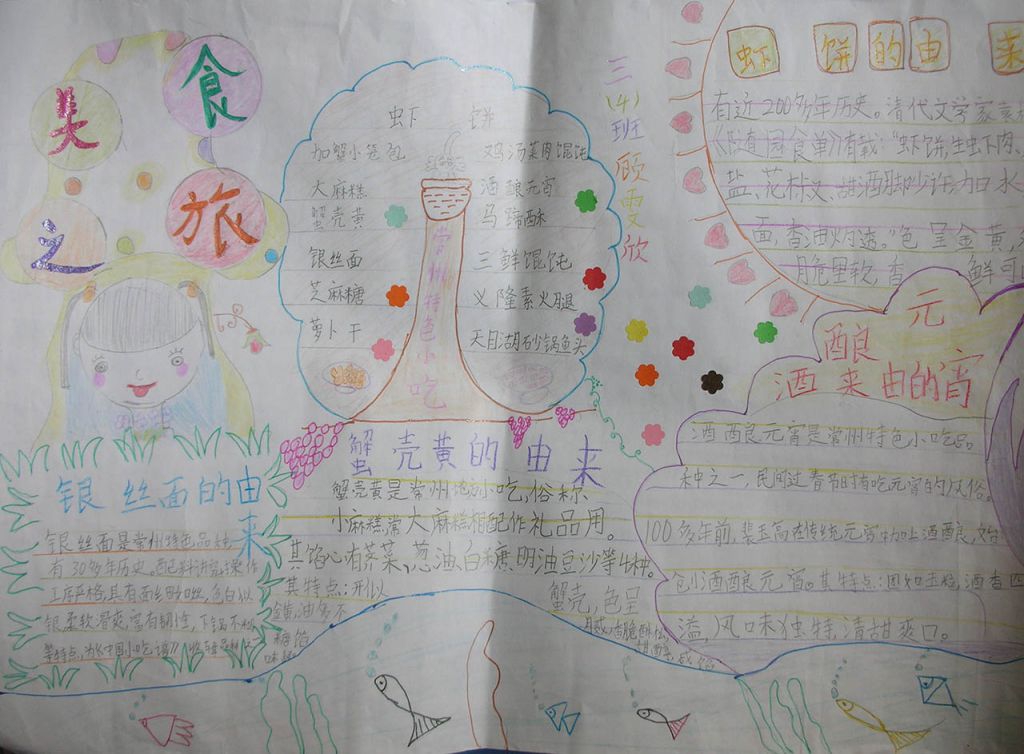 美食
之旅
虾 饼
加蟹小笼包
大麻糕
蟹壳黄
银丝面
芝麻糖
萝卜干
鸡汤菜肉馄饨
酒酿元宵
马蹄酥
三鲜馄饨
义隆素火腿
天目湖砂锅鱼头
常州特色小吃
三(4)班 顾雯欣
虾饼的由来
有近200多年历史。清代文学家
《随园食单》有载:“虾饼,生虾肉、
盐、花椒、甜酒脚少许,加水
面,香油灼透。”色呈金黄,
脆里软,香 鲜可
银丝面的由来
银丝面是常州特色
有30多年历史。配料讲究,操作
工序严格,具有面丝如丝,色白似
银,柔软滑爽,富有韧性,下锅不
等特点,为《中国小吃谱》
蟹壳黄的由来
蟹壳黄是常州地方小吃,俗称
小麻糕,常大麻糕相配作礼品用。
其馅心有荠菜、葱油、白糖、明油豆沙等4种。
其特点:形似
蟹壳,色呈
金黄,油多不
酒酿元宵的由来
酒酿元宵是常州特色小吃品
种之一,民间过春节时有吃元宵的风俗。
100多年前,裴玉高在传统元宵中加上酒酿,始
创酒酿元宵。其特点:圆如玉格,酒香四
溢,风味独特,清甜爽口。